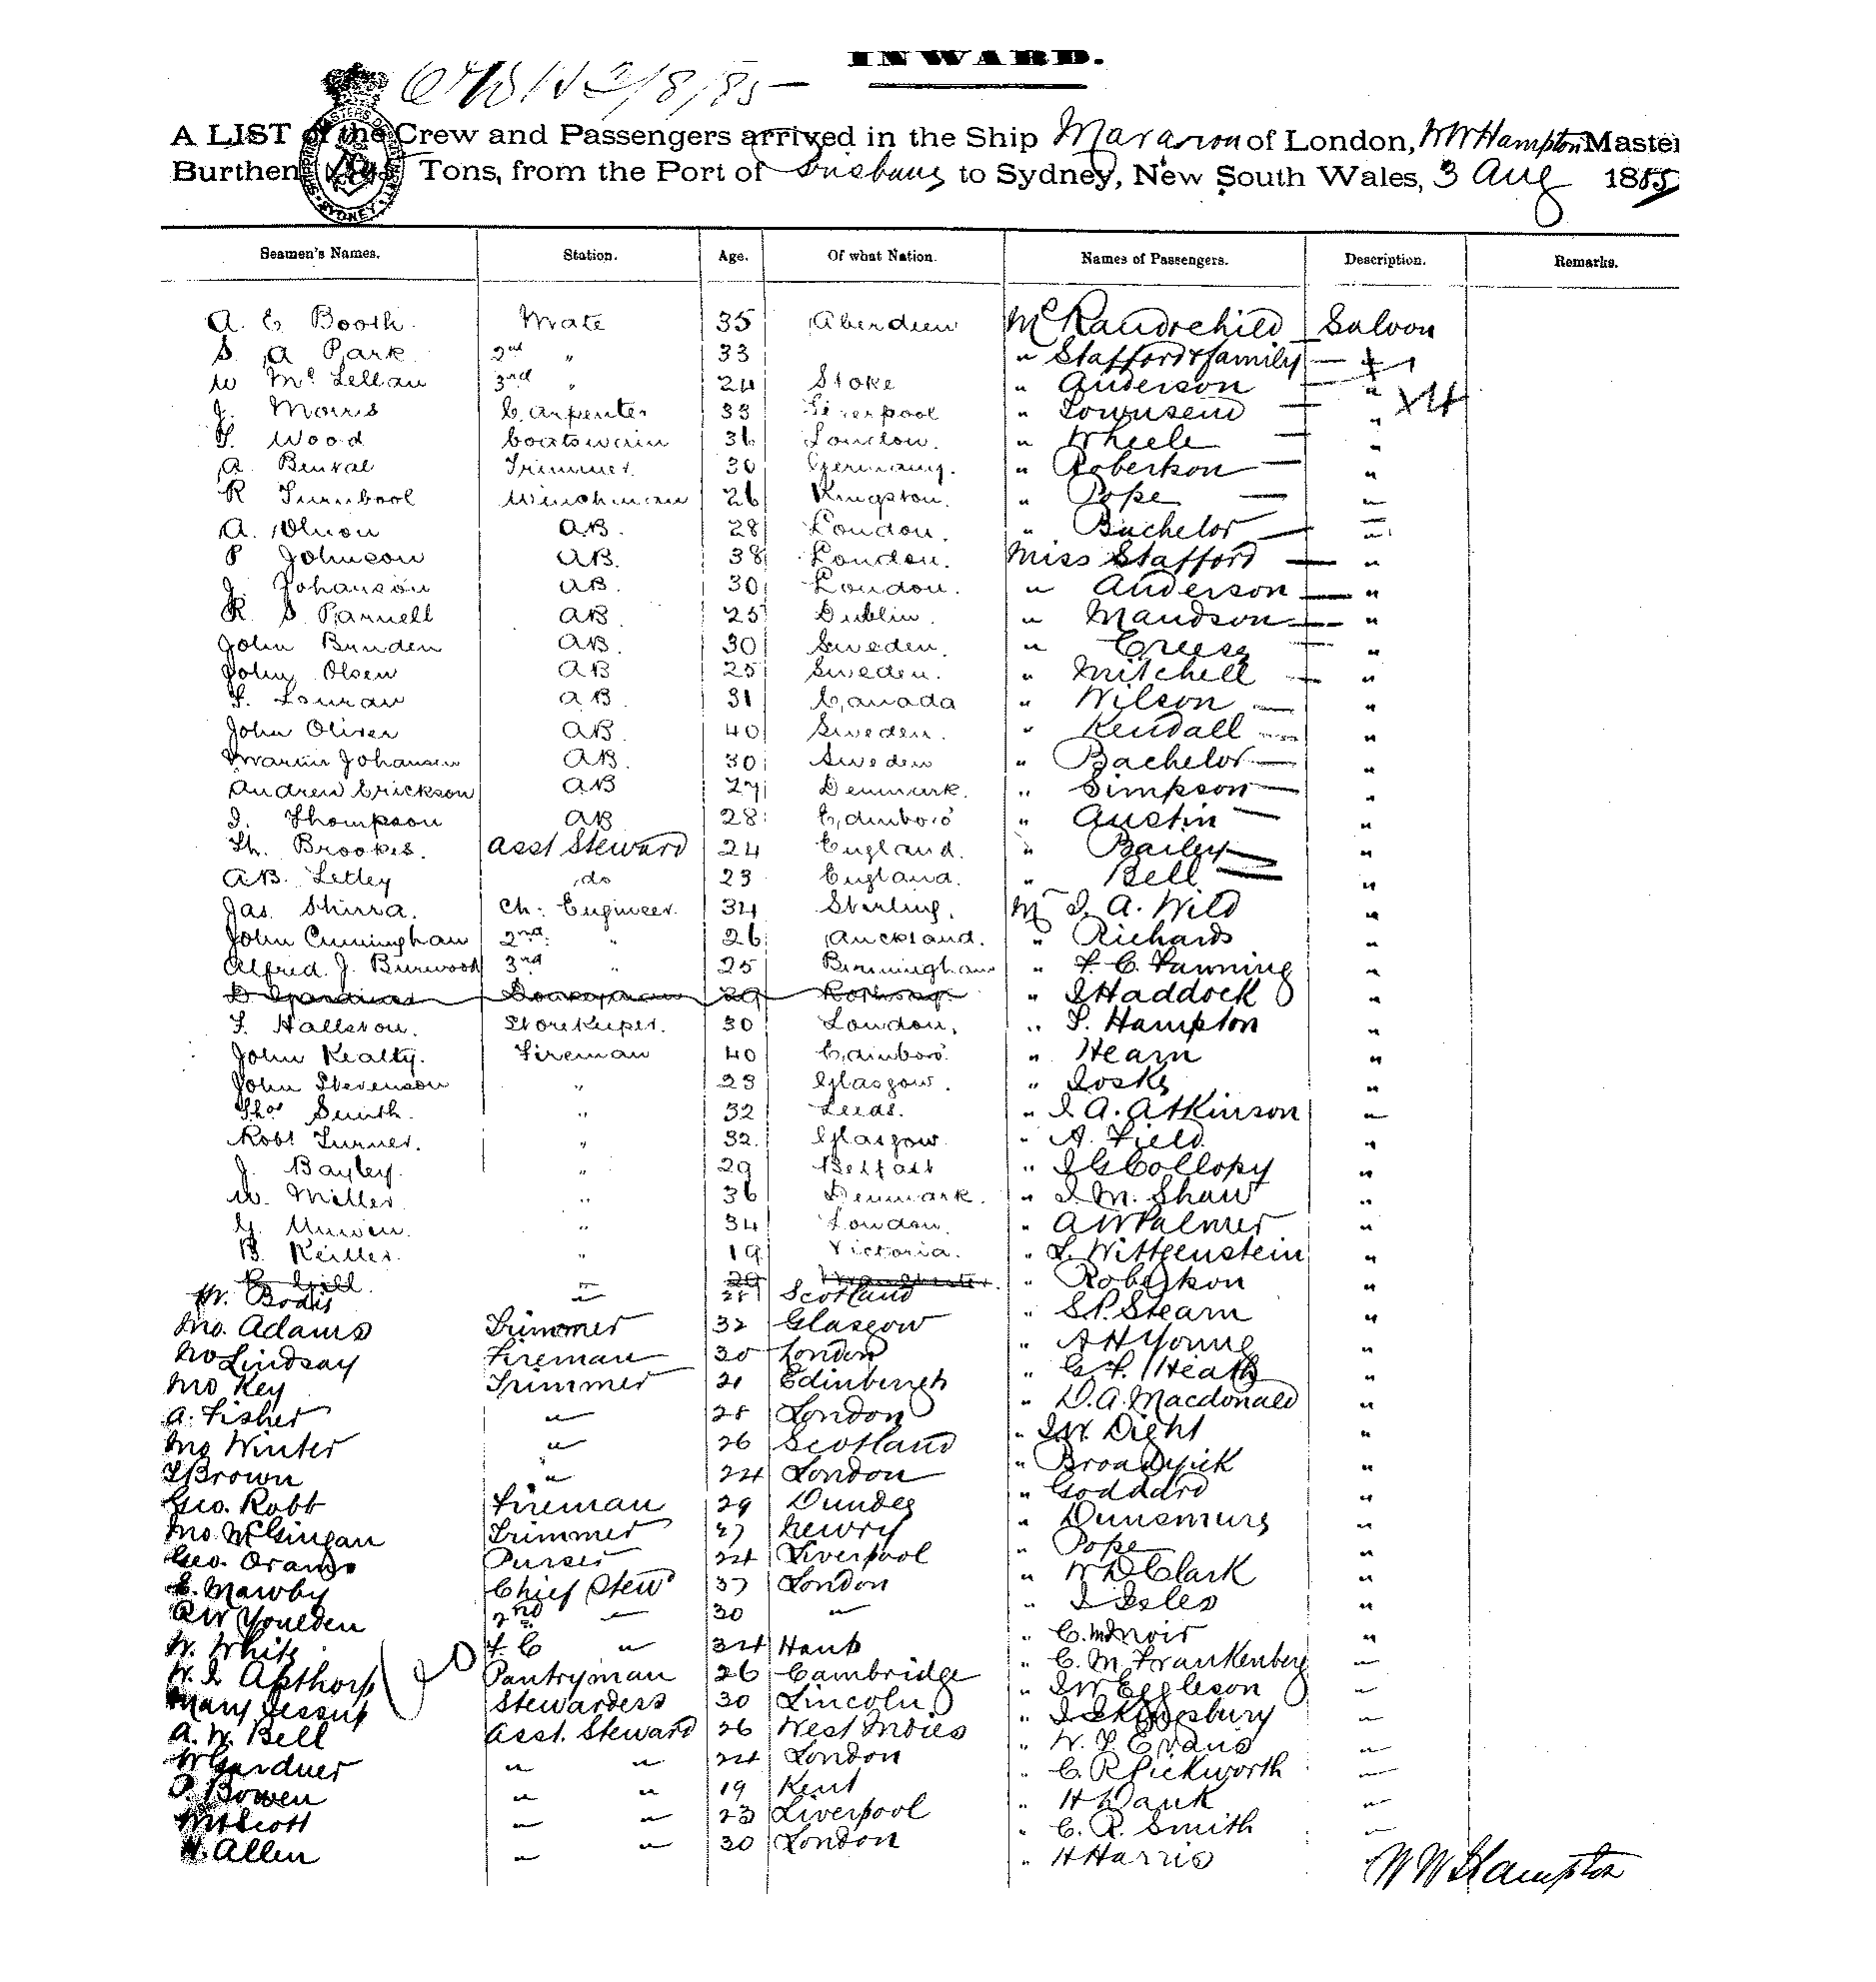 INWARD.
A LIST of the Crew and Passengers arrived in the Ship Mararoa of London, WW Hampton Master
Burthen Tons, from the Port of Brisbane to Sydney, New South Wales, 3 Aug 1885
Seamen's Names. Station. Age. Of what Nation. Names of Passengers. Description. Remarks.
A. E Booth Mate 35 Aberdeen Saloon
S A Park 2nd " 33 " Stafford & family
W McLellan 3rd " 24 Stoke " Anderson "
J. Morris Carpenter 33 Liverpool " Townsend "
Wood boatswain 36 London. " Wheele "
A. Trimmer 30 Germany. " Robertson "
R Turnbool Winchman 26 Kingston. " Pope "
A. AB. 28 London. " Bachelor "
P Johnson AB. 38 London. Miss Stafford "
J. Johanson AB. 30 London. " Anderson "
R. S Parnell AB. 25 Dublin. " Mandson "
John Brunden AB. 30 Sweden. " Creese "
John Olsen AB 25 Sweden. " Mitchell "
AB. 31 Canada " Wilson "
John Oliver AB. 40 Sweden. " Kendall "
Martin Johansen AB. 30 Sweden " Bachelor "
Andrew Erickson AB 27 Denmark. " Simpson "
J. Thompson AB 28 Edinboro' " Austin "
Th. Brookes. Asst Steward 24 England. " Bailey "
AB. Letley do 23 England. " Bell "
Jas. Shirra. Ch: Engineer. 34 Sterling. Mr J. A. Wild "
John Cunningham 2nd " 26 Auckland. " Richards "
Alfred. J. Burwood 3rd " 25 Birmingham " F. C. Fanning "
D Gardiner 29 Rothsay. " J Haddock "
T. Hallston. Storekeeper. 30 London. " S. Hampton "
John Kealty. Fireman 40 Edinboro. " Hearn "
John Stevenson " 23 Glasgow. " Joske "
Thos Smith. " 32 Leeds. " J. A. Atkinson "
Robt Turner. " 32. Glasgow. " A. Field "
J. Bayley. " 29 Belfast " J G Collopy "
W. Miller " 36 Denmark. " J. M. Shaw "
G. Unwin. " 34 London. " A W Palmer "
B. Keiller. " 19 Victoria. " L. Wittgenstein "
C Gill. " 29 Manchester. " Robertson "
W. Bodis " Scotland " S. P. Stearn "
Jno. Adams Trimmer 32 Glasgow " A H Young "
Jno Lindsay Fireman 30 London " G. F. Heath "
Jno Key Trimmer 21 Edinburgh " D. A. Macdonald "
A. Fisher " 28 London " J W. Dight "
Jno Winter " 26 Scotland " Broadrick "
T Brown " 24 London " Goddard "
Geo. Robb Fireman 29 Dundee " Dunsmure "
Jno. McGingan Trimmer 27 Newry " Pope "
Geo. Orams Purser 24 Liverpool " W D Clark "
E. Mawby Chief Stewd 37 London " J Isles "
R W Youlden 2nd " 30 " " C. "
W. White F. C " 34 Hants " C. M. Frankenberg "
W. J. Apthorp Pantryman 26 Cambridge " J W Eggleson "
Mary Jessup Stewardess 30 Lincoln "
A. W. Bell Asst. Steward 26 West Indies " W. F. Evans "
W Gardner " " 24 London " C. R Pickworth "
P. Bowen " " 19 Kent " H Dank "
Scott " " 23 Liverpool " C. R. Smith "
H. Allen " " 30 London " H Harris "
W W Hampton